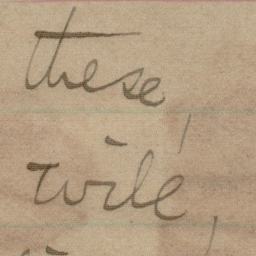 these,
wile,